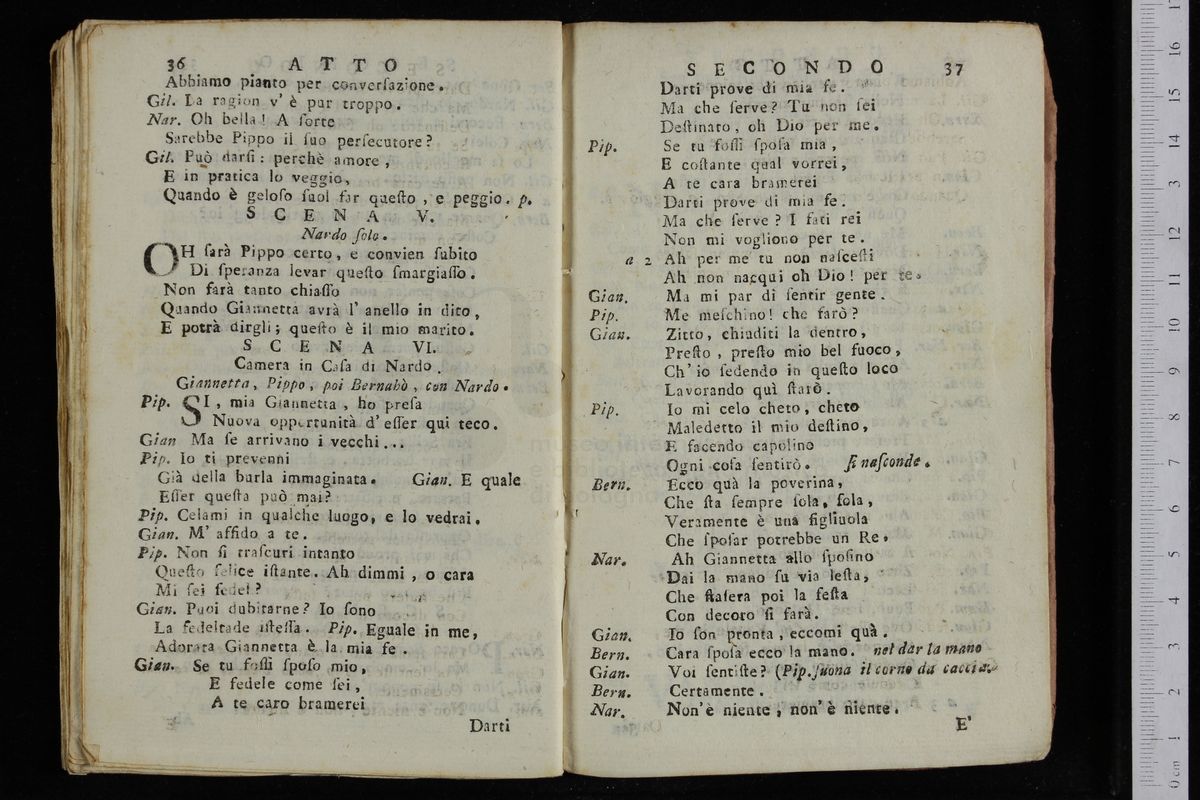 36 ATTO
Abbiamo pianto per converſazione.
Gil. La ragion v' è pur troppo.
Nar. Oh bella! A ſorte
Sarebbe Pippo il ſuo perſecutore?
Gil. Può darſi: perchè amore,
E in pratica lo veggio,
Quando è geloſo ſuol far queſto, e peggio. p.
SCENA V.
Nardo ſolo.
OH ſarà Pippo certo, e convien ſubito
Di ſperanza levar queſto ſmargiaſſo.
Non farà tanto chiaſſo
Quando Giannetta avrà l' anello in dito,
E potrà dirgli; queſto è il mio marito.
SCENA VI.
Camera in Caſa di Nardo.
Giannetta, Pippo, poi Bernabò, con Nardo.
Pip. SI, mia Giannetta, ho preſa
Nuova opportunità d' eſſer qui teco.
Gian Ma ſe arrivano i vecchi...
Pip. Io ti prevenni
Già della burla immaginata. Gian. E quale
Eſſer queſta può mai?
Pip. Celami in qualche luogo, e lo vedrai.
Gian. M' affido a te.
Pip. Non ſi traſcuri intanto
Queſto felice iſtante. Ah dimmi, o cara
Mi ſei fedel?
Gian. Puoi dubitarne? Io ſono
La fedeltade iſteſſa. Pip. Eguale in me,
Adorata Giannetta è la mia fe.
Gian. Se tu foſſi ſpoſo mio,
E fedele come ſei,
A te caro bramerei
Darti
SECONDO 37
Darti prove di mia fe.
Ma che ſerve? Tu non ſei
Deſtinato, oh Dio per me.
Pip. Se tu foſſi ſpoſa mia,
E coſtante qual vorrei,
A te cara bramerei
Darti prove di mia fe.
Ma che ſerve? I fati rei
Non mi vogliono per te.
a 2 Ah per me tu non naſceſti
Ah non nacqui oh Dio! per te.
Gian. Ma mi par di ſentir gente.
Pip. Me meſchino! che farò?
Gian. Zitto, chiuditi la dentro,
Preſto, preſto mio bel fuoco,
Ch' io ſedendo in queſto loco
Lavorando quì ſtarò.
Pip. Io mi celo cheto, cheto
Maledetto il mio deſtino,
E facendo capolino
Ogni coſa ſentirò. ſi naſconde.
Bern. Ecco quà la poverina,
Che ſta ſempre ſola, ſola,
Veramente è una figliuola
Che ſpoſar potrebbe un Re.
Nar. Ah Giannetta allo ſpoſino
Dai la mano ſu via leſta,
Che ſtaſera poi la feſta
Con decoro ſi farà.
Gian. Io ſon pronta, eccomi quà.
Bern. Cara ſpoſa ecco la mano. nel dar la mano
Gian. Voi ſentiſte? (Pip. ſuona il corno da caccia.
Bern. Certamente.
Nar. Non'è niente, non'è niente.
E'